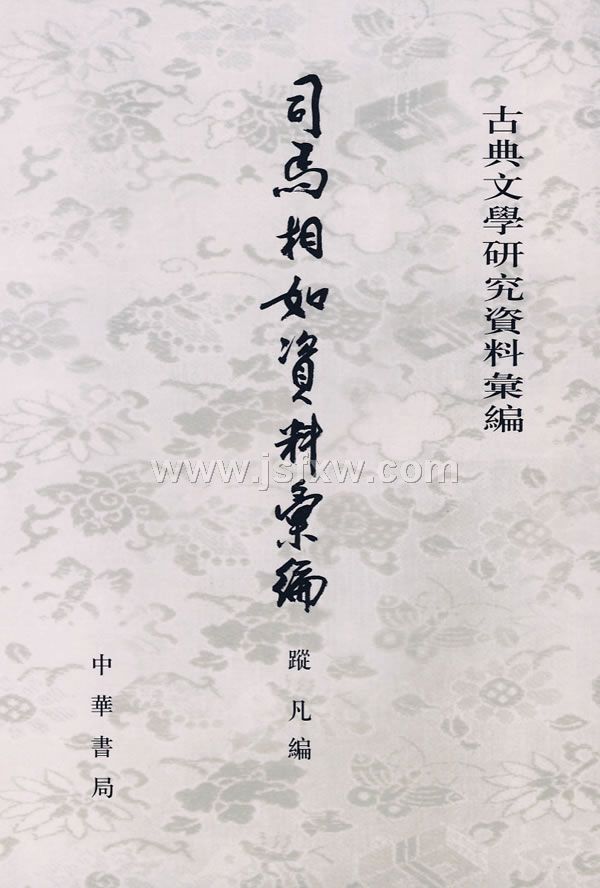 古典文學研究資料彙編
司馬相如資料彙編
蹤凡編
中華書局
www.jsfxw.com